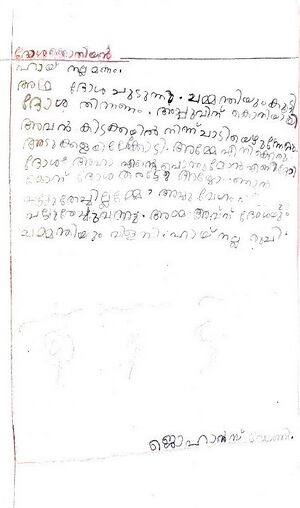 ദോശക്കൊതിയൻ
ഹായ് നല്ല മണം.
അമ്മ ദോശ ചുടുന്നു. ചമ്മന്തിയും കൂട്ടി
ദോശ തിന്നണം. അപ്പുവിന് കൊതിയായി
അവൻ കിടക്കയിൽ നിന്ന് ചാടിയെഴുന്നേറ്റു
അടുക്കളയിലേക്കോടി. അമ്മേ എനിക്കൊരു
ദോശ? അമ്മ എന്റെ പൊന്നുമോൻ എണീറ്റോ
മോന് ദോശ തരട്ടേ അയ്യോ ഞാൻ
പല്ലുതേച്ചില്ലമ്മേ? അപ്പു വേഗം
പല്ലുതേച്ചുവന്നു. അമ്മ അവന് ദോശയും
ചമ്മന്തിയും വിളമ്പി. ഹായ് നല്ല രുചി.
ജൊഹാൻസ്